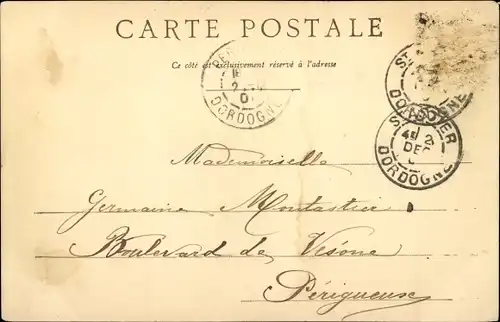 CARTE POSTALE
Ce côté est exclusivement réservé à l'adresse
DORDOGNE
DORDOGNE
4E 2
DEC
DORDOGNE
Mademoiselle
Germaine Montastier
Boulevard de Vésone
Périgueux